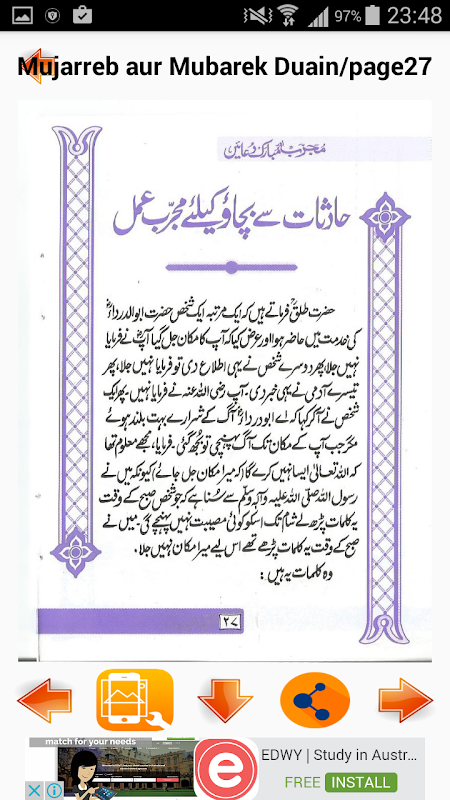 97% 23:48
Mujarreb aur Mubarek Duain/page27
مجرّب اور مبارک دعائیں
حادثات سے بچاؤ کیلئے مجرّب عمل
حضرت طلقؒ فرماتے ہیں کہ ایک مرتبہ ایک شخص حضرت ابوالدرداءؓ
کی خدمت میں حاضر ہوا اور عرض کیا کہ آپ کا مکان جل گیا آپؓ نے فرمایا
نہیں جلا، پھر دوسرے شخص نے یہی اطلاع دی تو فرمایا نہیں جلا، پھر
تیسرے آدمی نے یہی خبر دی۔ آپ رضی اللہ عنہ نے فرمایا نہیں۔ پھر ایک
شخص نے آکر کہا کہ اے ابودرداءؓ آگ کے شرارے بہت بلند ہوئے
مگر جب آپ کے مکان تک آگ پہنچی تو بُجھ گئی۔ فرمایا، مجھے معلوم تھا
کہ اللہ تعالیٰ ایسا نہیں کرے گا (کہ میرا مکان جل جائے) کیونکہ میں نے
رسول اللہ صلی اللہ علیہ وآلہ وسلم سے سُنا ہے کہ جو شخص صبح کے وقت
یہ کلمات پڑھ لے شام تک اسکو کوئی مصیبت نہیں پہنچے گی۔ میں نے
صبح کے وقت یہ کلمات پڑھے تھے اس لیے میرا مکان نہیں جلا۔
وہ کلمات یہ ہیں :
۲۷
match for your needs
e
EDWY | Study in Austr...
FREE INSTALL